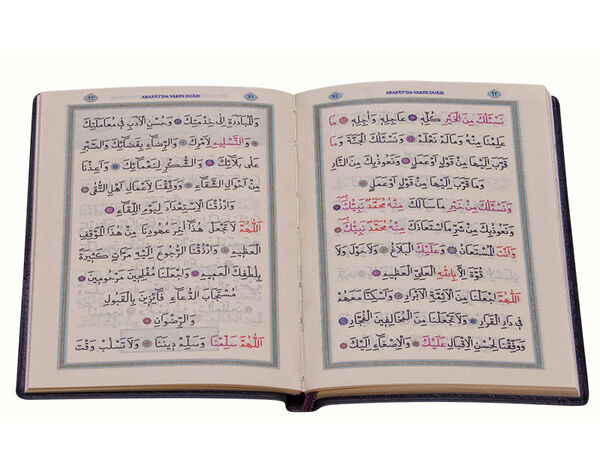 ARAFÂT'DA VAKFE DUÂSI
نَسْـَٔلُكَ مِنَ الْخَيْرِ كُلِّهِ عَاجِلِهِ وَاٰجِلِهِ مَا
عَلِمْنَا مِنْهُ وَمَا لَمْ نَعْلَمْ وَنَسْـَٔلُكَ الْجَنَّةَ وَمَا
قَرَّبَ اِلَيْهَا مِنْ قَوْلٍ اَوْ عَمَلٍ وَنَعُوذُ بِكَ مِنَ النَّارِ
وَمَا قَرَّبَ اِلَيْهَا مِنْ قَوْلٍ اَوْ عَمَلٍ
وَنَسْـَٔلُكَ مِنْ خَيْرِ مَا سَاَلَكَ مِنْهُ مُحَمَّدٌ نَبِيُّكَ
وَنَعُوذُ بِكَ مِنْ شَرِّ مَا اسْتَعَاذَكَ مِنْهُ مُحَمَّدٌ نَبِيُّكَ
وَاَنْتَ الْمُسْتَعَانُ وَعَلَيْكَ الْبَلَاغُ وَلَا حَوْلَ وَلَا
قُوَّةَ اِلَّا بِاللّٰهِ الْعَلِىِّ الْعَظِيمِ
اَللّٰهُمَّ اجْعَلْنَا مِنَ الْاَئِمَّةِ الْاَبْرَارِ وَاَسْكِنَّا مَعَهُمْ
فِى دَارِ الْقَرَارِ وَلَا تَجْعَلْنَا مِنَ الْمُخَالِفِينَ الْفُجَّارِ
وَوَفِّقْنَا لِحُسْنِ الْاِقْبَالِ عَلَيْكَ وَالْاِصْغَاءِ اِلَيْكَ
ARAFÂT'DA VAKFE DUÂSI
وَالْمُبَادَرَةِ اِلٰى خِدْمَتِكَ وَحُسْنِ الْاَدَبِ فِى مُعَامَلَتِكَ
وَالتَّسْلِيمِ لِاَمْرِكَ وَالرِّضَاءِ بِقَضَائِكَ وَالصَّبْرِ
عَلٰى بَلَائِكَ وَالشُّكْرِ لِنَعْمَائِكَ وَاَعِذْنَا
مِنْ اَحْوَالِ الشَّقَاءِ وَوَفِّقْنَا لِاَعْمَالِ اَهْلِ التُّقٰى
وَارْزُقْنَا الْاِسْتِعْدَادَ لِيَوْمِ اللِّقَاءِ
اَللّٰهُمَّ لَا تَجْعَلْ هٰذَا اٰخِرَ عُهُودِنَا مِنْ هٰذَا الْمَوْقِفِ
الْعَظِيمِ وَارْزُقْنَا الرُّجُوعَ اِلَيْهِ مَرَّاتٍ كَثِيرَةً
بِلُطْفِكَ الْعَمِيمِ وَاجْعَلْنَا مُفْلِحِينَ مَرْحُومِينَ
مُسْتَجَابَ الدُّعَاءِ فَائِزِينَ بِالْقَبُولِ
وَالرِّضْوَانِ
اَللّٰهُمَّ سَلِّمْنَا وَسَلِّمْ دِينَنَا وَلَا تَسْلُبْ وَقْتَ